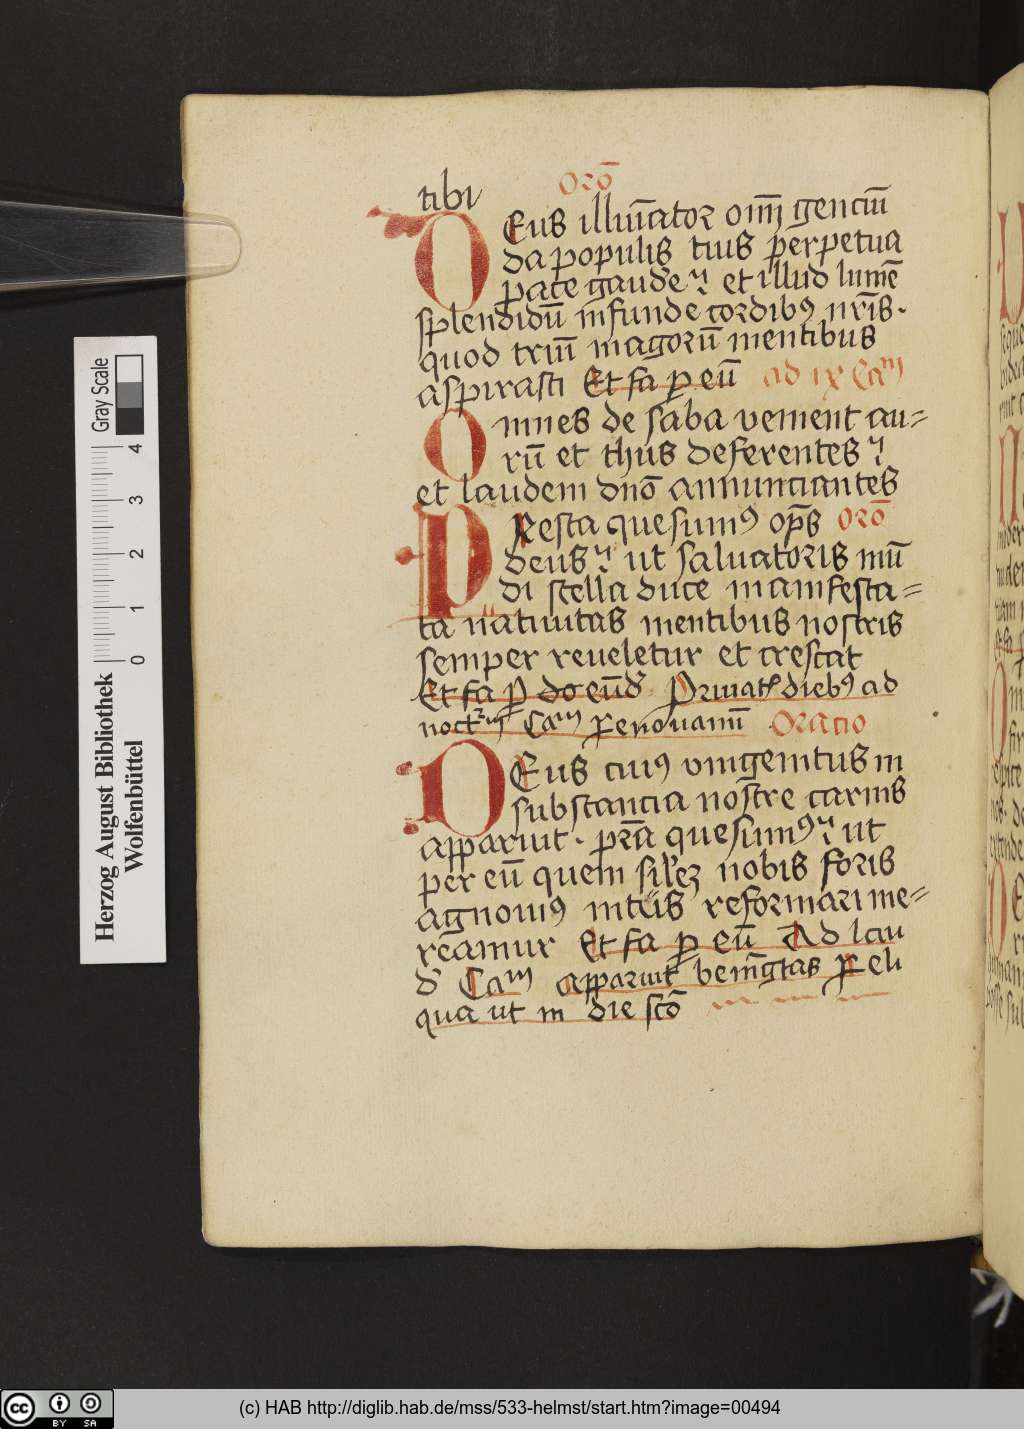 tibi Orō
DEus illuīator om̄ī genciū
da populis tuis perpetua
pace gaude? et illud lumē
splendidū infunde cordibꝰ nrīs.
quod triū magorū mentibus
aspirasti Et fa ꝑ eū ad ix Cam
Omnes de saba venient au=
rū et thus deferentes
et laudem dnō annunciantes
PResta quesumꝰ ops̄ Orō
deus ut saluatoris mū
di stella duce manifesta=
ta natiuitas mentibus nostris
semper reueletur et crescat
Et fa ꝑ do eūd Priuatꝭ diebꝰ ad
noctꝛm Cam ꝑenouamī Oracio
DEus cuiꝰ vnigenitus in
substancia nostre carnis
apparuit. pr̄a quesumꝰ ut
per eū quem silꝫ nobis foris
agnouimꝰ intus reformari me=
reamur Et fa ꝑ eū Ad lau
d Cam apparuit benīgtas ꝑ eli
qua ut in die sco
Herzog August Bibliothek
Wolfenbüttel
Gray Scale
0 1 2 3 4
cc BY SA
(c) HAB http://diglib.hab.de/mss/533-helmst/start.htm?image=00494